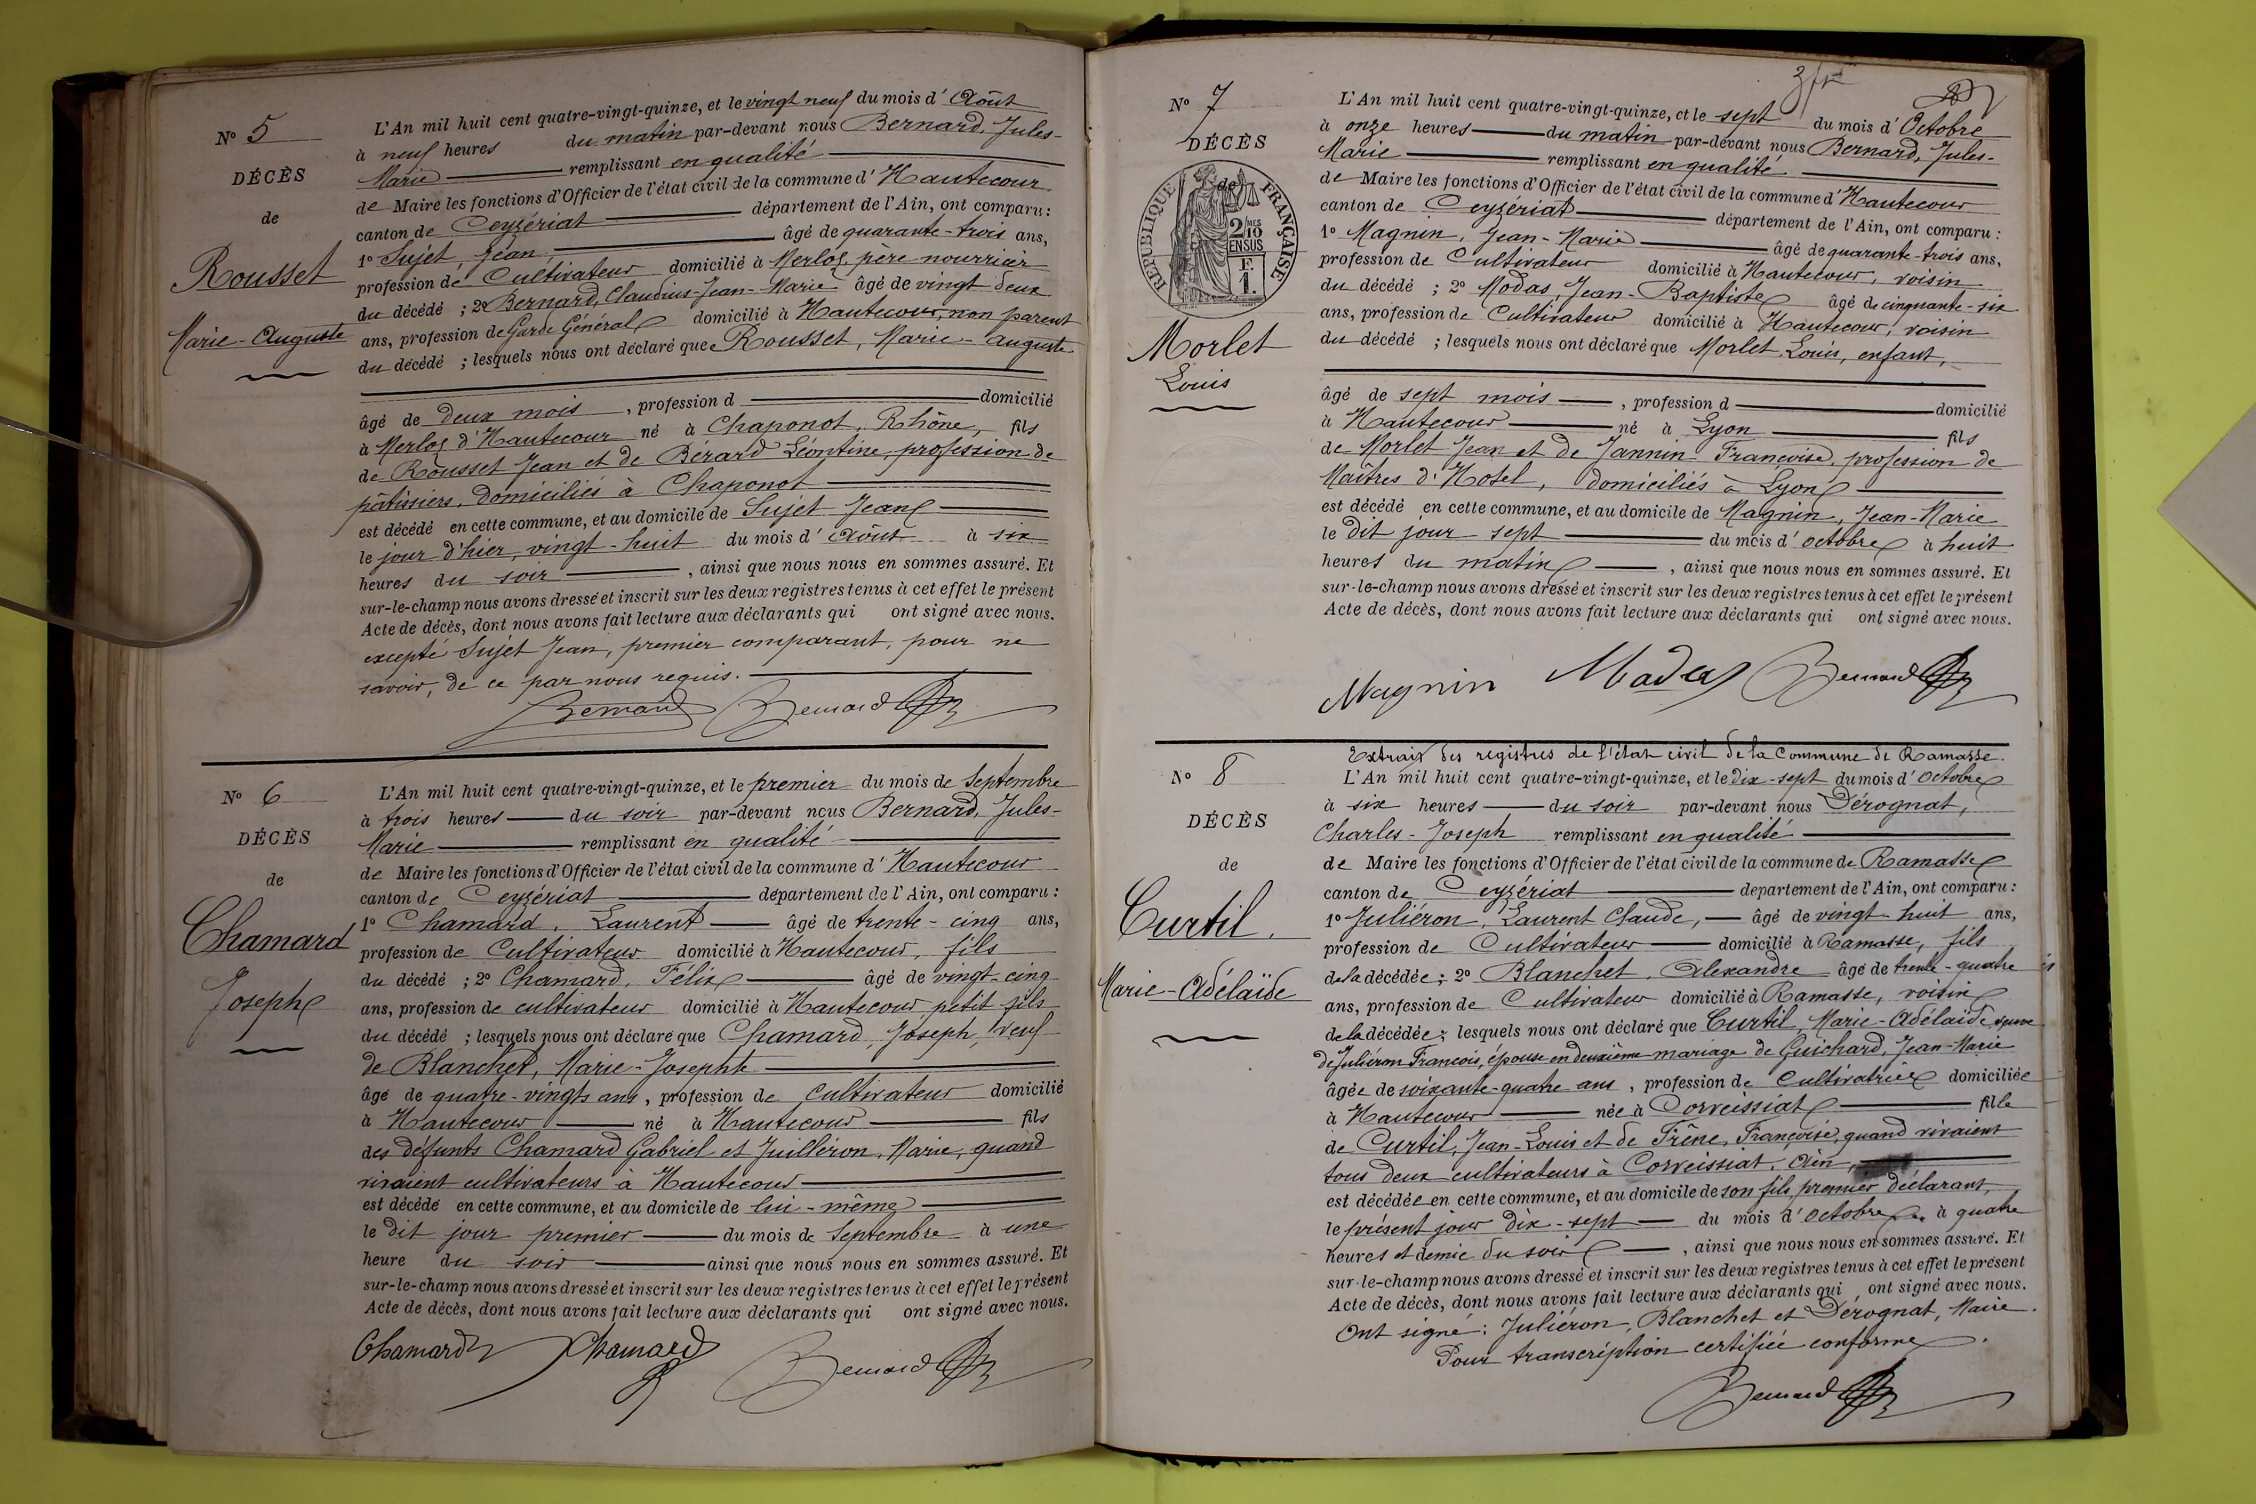 N° 5
DÉCÈS
de
Rousset
Marie-Auguste
L'An mil huit cent quatre-vingt-quinze, et le vingt neuf du mois d'Août
à neuf heures du matin par-devant nous Bernard, Jules-
Marie remplissant en qualité
de Maire les fonctions d'Officier de l'état civil de la commune d'Hautecour
canton de Ceyzériat département de l'Ain, ont comparu :
1° Sujet Jean âgé de quarante-trois ans,
profession de Cultivateur domicilié à Merloz, père nourricier
du décédé ; 2° Bernard, Claudius-Jean-Marie âgé de vingt deux
ans, profession de Garde Général domicilié à Hautecour, non parent
du décédé ; lesquels nous ont déclaré que Rousset, Marie-Auguste
âgé de deux mois , profession d domicilié
à Merloz d'Hautecour né à Chaponot, Rhône, fils
de Rousset Jean et de Bérard Léontine, profession de
pâtissiers, domiciliés à Chaponot
est décédé en cette commune, et au domicile de Sujet Jean
le jour d'hier, vingt-huit du mois d'Août à six
heures du soir , ainsi que nous nous en sommes assuré. Et
sur-le-champ nous avons dressé et inscrit sur les deux registres tenus à cet effet le présent
Acte de décès, dont nous avons fait lecture aux déclarants qui ont signé avec nous.
excepté Sujet Jean, premier comparant, pour ne
savoir, de ce par nous requis.
Bernard Bernard
N° 6
DÉCÈS
de
Chamard
Joseph
L'An mil huit cent quatre-vingt-quinze, et le premier du mois de Septembre
à trois heures du soir par-devant nous Bernard, Jules-
Marie remplissant en qualité
de Maire les fonctions d'Officier de l'état civil de la commune d'Hautecour
canton de Ceyzériat département de l'Ain, ont comparu :
1° Chamard, Laurent âgé de trente-cinq ans,
profession de Cultivateur domicilié à Hautecour, fils
du décédé ; 2° Chamard, Félix âgé de vingt-cinq
ans, profession de cultivateur domicilié à Hautecour petit fils
du décédé ; lesquels nous ont déclaré que Chamard Joseph, veuf
de Blanchet, Marie-Josephte
âgé de quatre-vingts ans, profession de cultivateur domicilié
à Hautecour né à Hautecour fils
des défunts Chamard Gabriel et Juilléron, Marie, quand
vivaient cultivateurs à Hautecour
est décédé en cette commune, et au domicile de lui-même
le dit jour premier du mois de Septembre à une
heure du soir ainsi que nous nous en sommes assuré. Et
sur-le-champ nous avons dressé et inscrit sur les deux registres tenus à cet effet le présent
Acte de décès, dont nous avons fait lecture aux déclarants qui ont signé avec nous.
Chamard Chamard Bernard
N° 7
DÉCÈS
de
RÉPUBLIQUE FRANÇAISE
2/10MES
EN SUS
F.
1.
Morlet
Louis
L'An mil huit cent quatre-vingt-quinze, et le sept du mois d'Octobre
à onze heures du matin par-devant nous Bernard, Jules-
Marie remplissant en qualité
de Maire les fonctions d'Officier de l'état civil de la commune d'Hautecour
canton de Ceyzériat département de l'Ain, ont comparu :
1° Magnin, Jean-Marie âgé de quarante-trois ans,
profession de Cultivateur domicilié à Hautecour, voisin
du décédé ; 2° Modas, Jean-Baptiste âgé de cinquante-six
ans, profession de Cultivateur domicilié à Hautecour, voisin
du décédé ; lesquels nous ont déclaré que Morlet Louis, enfant,
âgé de sept mois , profession d domicilié
à Hautecour né à Lyon fils
de Morlet Jean et de Jannin Françoise, profession de
Maîtres d'Hotel, domiciliés à Lyon
est décédé en cette commune, et au domicile de Magnin, Jean-Marie
le dit jour sept du mois d'octobre à huit
heures du matin , ainsi que nous nous en sommes assuré. Et
sur-le-champ nous avons dressé et inscrit sur les deux registres tenus à cet effet le présent
Acte de décès, dont nous avons fait lecture aux déclarants qui ont signé avec nous.
Magnin Modas Bernard
N° 8
DÉCÈS
de
Curtil,
Marie-Adélaïde
Extrait des registres de l'état civil de la Commune de Ramasse.
L'An mil huit cent quatre-vingt-quinze, et le dix-sept du mois d'octobre
à six heures du soir par-devant nous Dérognat,
Charles-Joseph remplissant en qualité
de Maire les fonctions d'Officier de l'état civil de la commune de Ramasse
canton de Ceyzériat département de l'Ain, ont comparu :
1° Juliéron, Laurent Claude, âgé de vingt huit ans,
profession de Cultivateur domicilié à Ramasse, fils
de la décédée ; 2° Blanchet, Alexandre âgé de trente-quatre
ans, profession de Cultivateur domicilié à Ramasse, voisin
de la décédée ; lesquels nous ont déclaré que Curtil, Marie-Adélaïde, veuve
de Juliéron François, épouse en deuxième mariage de Guichard, Jean-Marie
âgée de soixante-quatre ans, profession de Cultivatrice domiciliée
à Hautecour née à Corveissiat fille
de Curtil, Jean-Louis et de Frêne, Françoise, quand vivaient
tous deux cultivateurs à Corveissiat, Ain,
est décédée en cette commune, et au domicile de son fils, premier déclarant,
le présent jour dix-sept du mois d'octobre à quatre
heures et demie du soir , ainsi que nous nous en sommes assuré. Et
sur-le-champ nous avons dressé et inscrit sur les deux registres tenus à cet effet le présent
Acte de décès, dont nous avons fait lecture aux déclarants qui ont signé avec nous.
Ont signé : Juliéron, Blanchet et Dérognat, Maire.
Pour transcription certifiée conforme.
Bernard